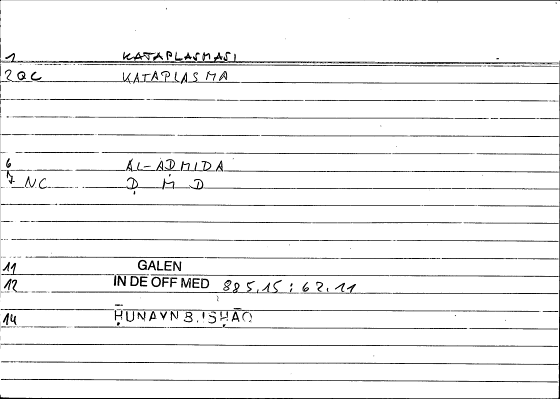 1 KATAPLASMASI
2 QC KATAPLASMA
6 AL-AḌMIDA
7 NC Ḍ M D
11 GALEN
12 IN DE OFF MED 885,15 : 62.11
14 ḤUNAYN B. ISḤĀQ